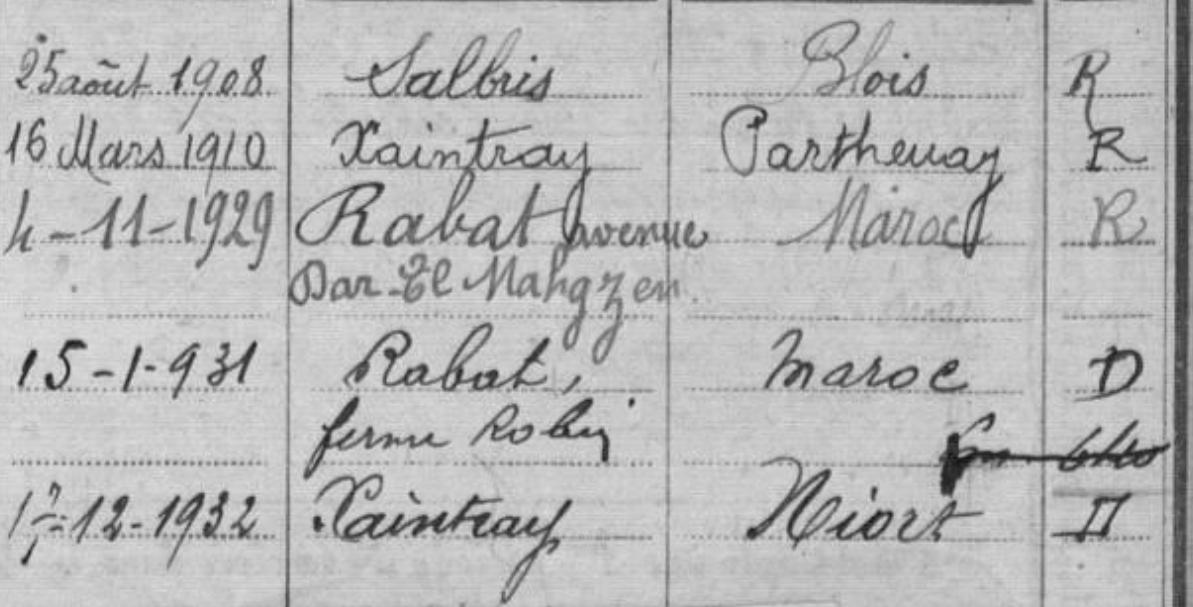 25 août 1908 Salbris Blois R
16 Mars 1910 Xaintray Parthenay R
4-11-1929 Rabat avenue Maroc R
Dar-El Mahgzen
15-1-931 Rabat, Maroc D
ferme Robin
17-12-1932 Xaintray Niort D